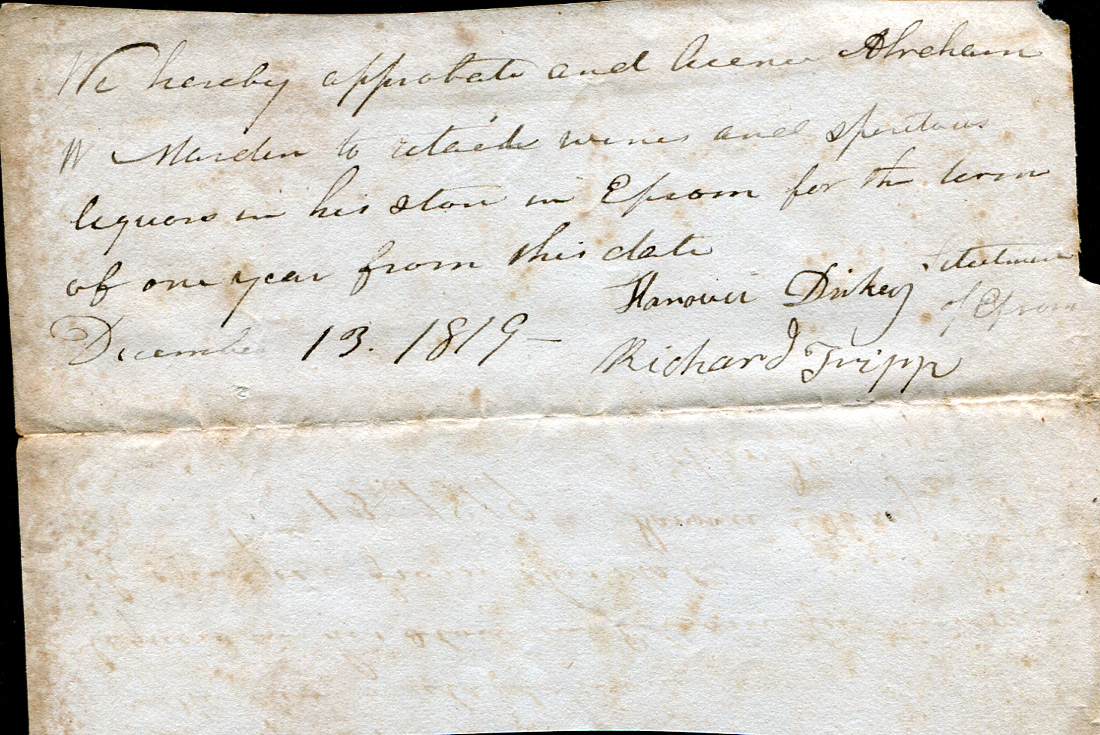 We hereby approbate and licence Abraham
W Marden to retail wines and spiritous
liquors in his store in Epsom for the term
of one year from this date
Hanover Dickey Selectmen
December 13. 1819 – of Epsom
Richard Tripp